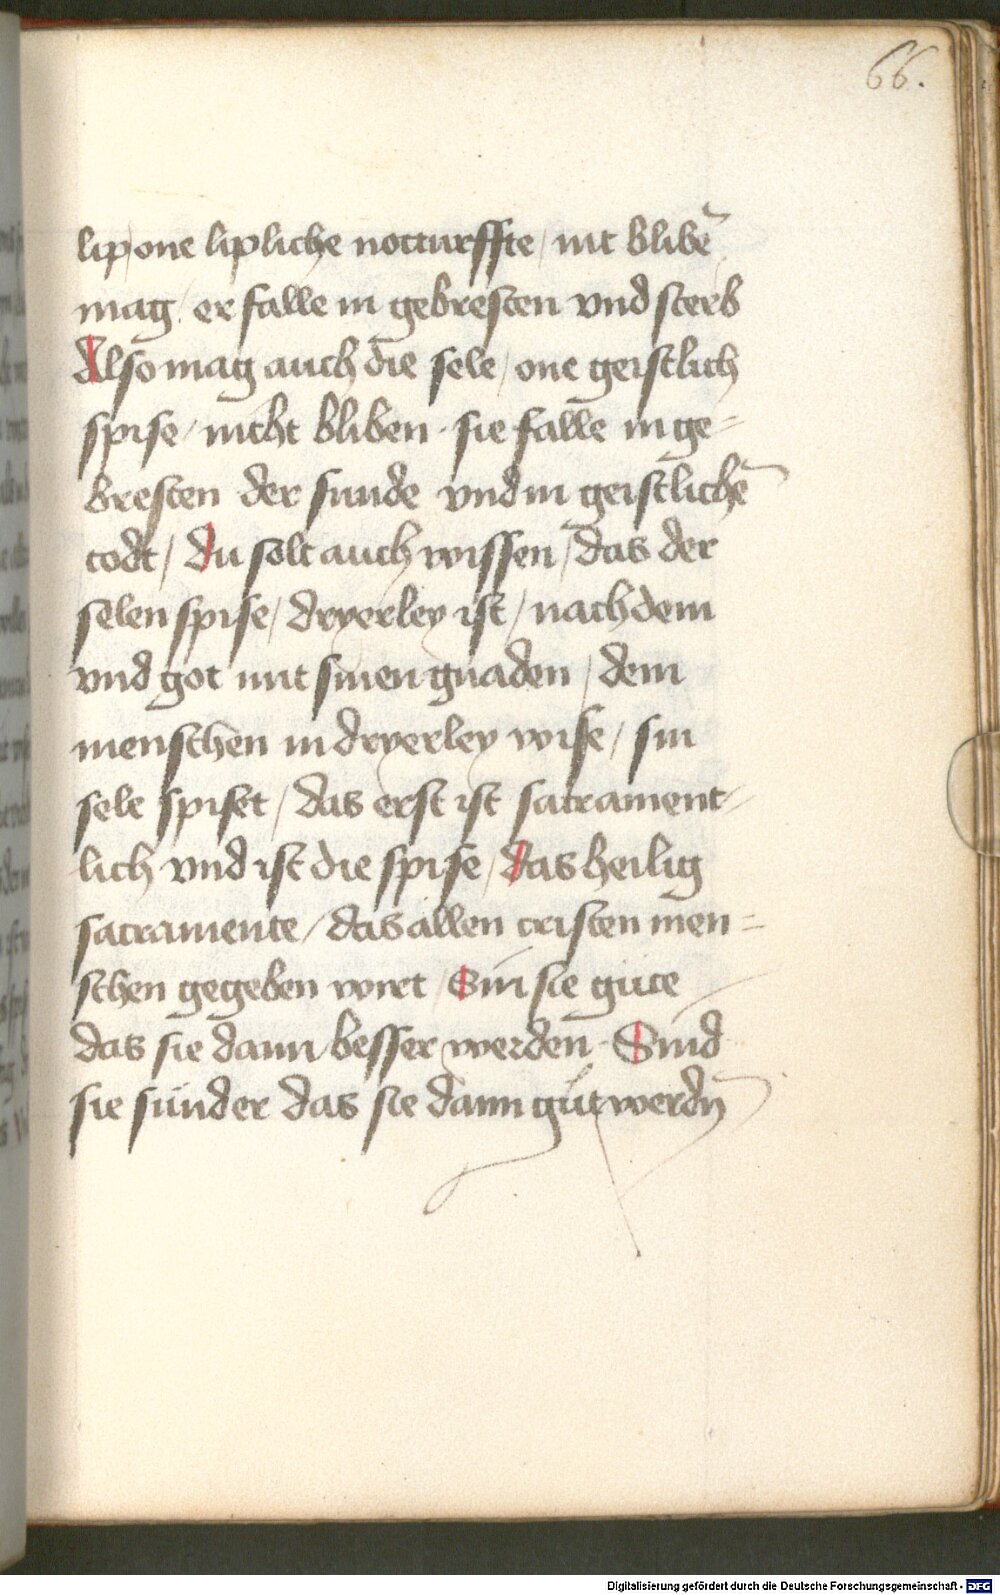 66.
lip / one lipliche notturffte / nit blibē
mag / er falle in gebresten vnd sterb
Also mag auch die sele / one geistlich
spise / nicht bliben · sie falle in ge=
bresten der sunde vnd in geistlichē
todt / du solt auch wissen / das der
selen spise / dryerley ist / nach dem
vnd got mit sinen gnaden / dem
menschen in dryerley wise / sin
sele spiset / das erst ist sacrament-
lich vnd ist die spise / das heilig
sacramente / das allen cristen men=
schen gegeben wirt / Sin sie güte
das sie dann besser werden · Sind
sie sünder das sie dann güt werdn
Digitalisierung gefördert durch die Deutsche Forschungsgemeinschaft - DFG